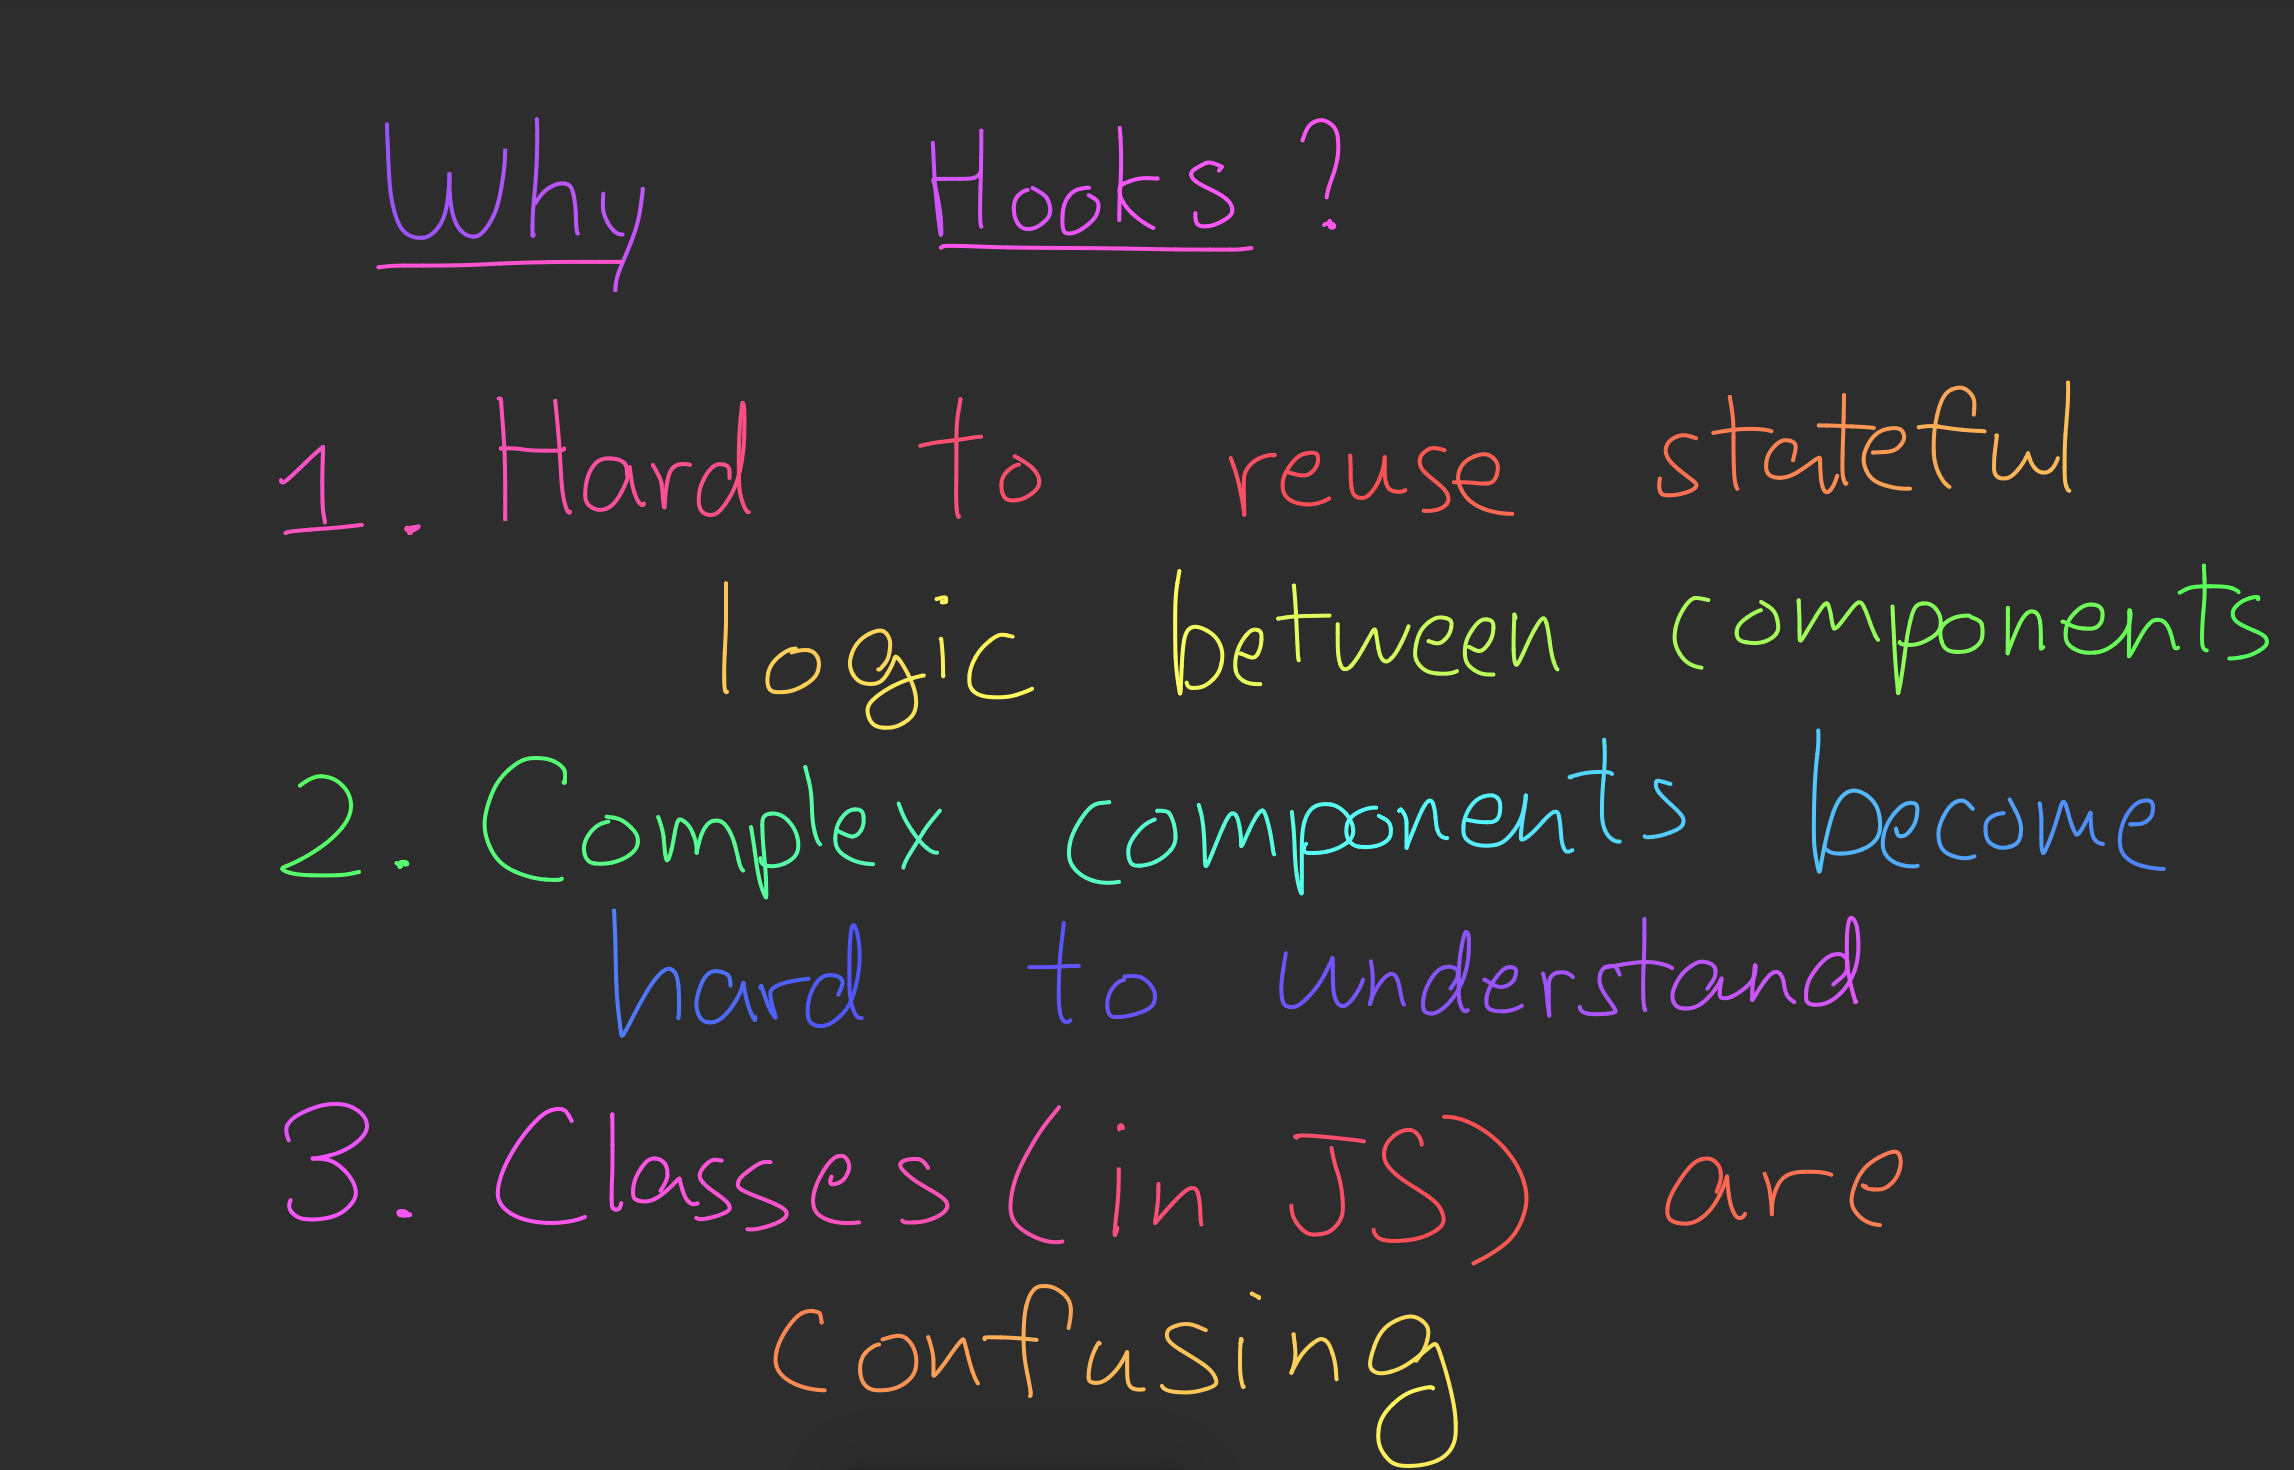 Why Hooks?
1. Hard to reuse stateful
logic between components
2. Complex components become
hard to understand
3. Classes (in JS) are
confusing